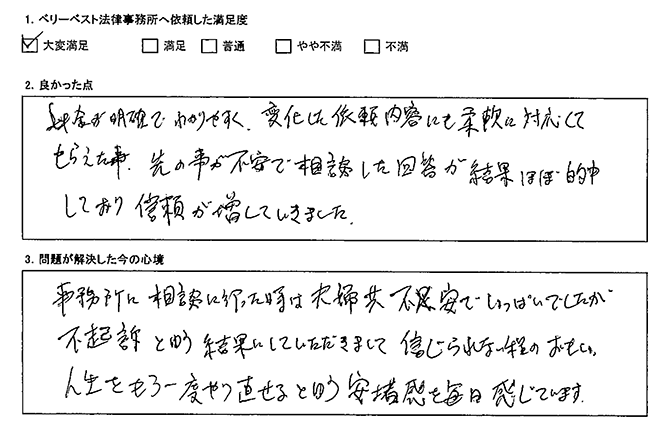 1. ベリーベスト法律事務所へ依頼した満足度
大変満足 満足 普通 やや不満 不満
2. 良かった点
料金が明確でわかりやすく、変化した依頼内容にも柔軟に対応して
もらえた事。先の事が不安で相談した回答が結果ほぼ的中
しており信頼が増していきました。
3. 問題が解決した今の心境
事務所に相談に行った時は夫婦共不安でいっぱいでしたが
不起訴とゆう結果にしていただきまして信じられない程のおもい。
人生をもう一度やり直せるとゆう安堵感を毎日感じています。